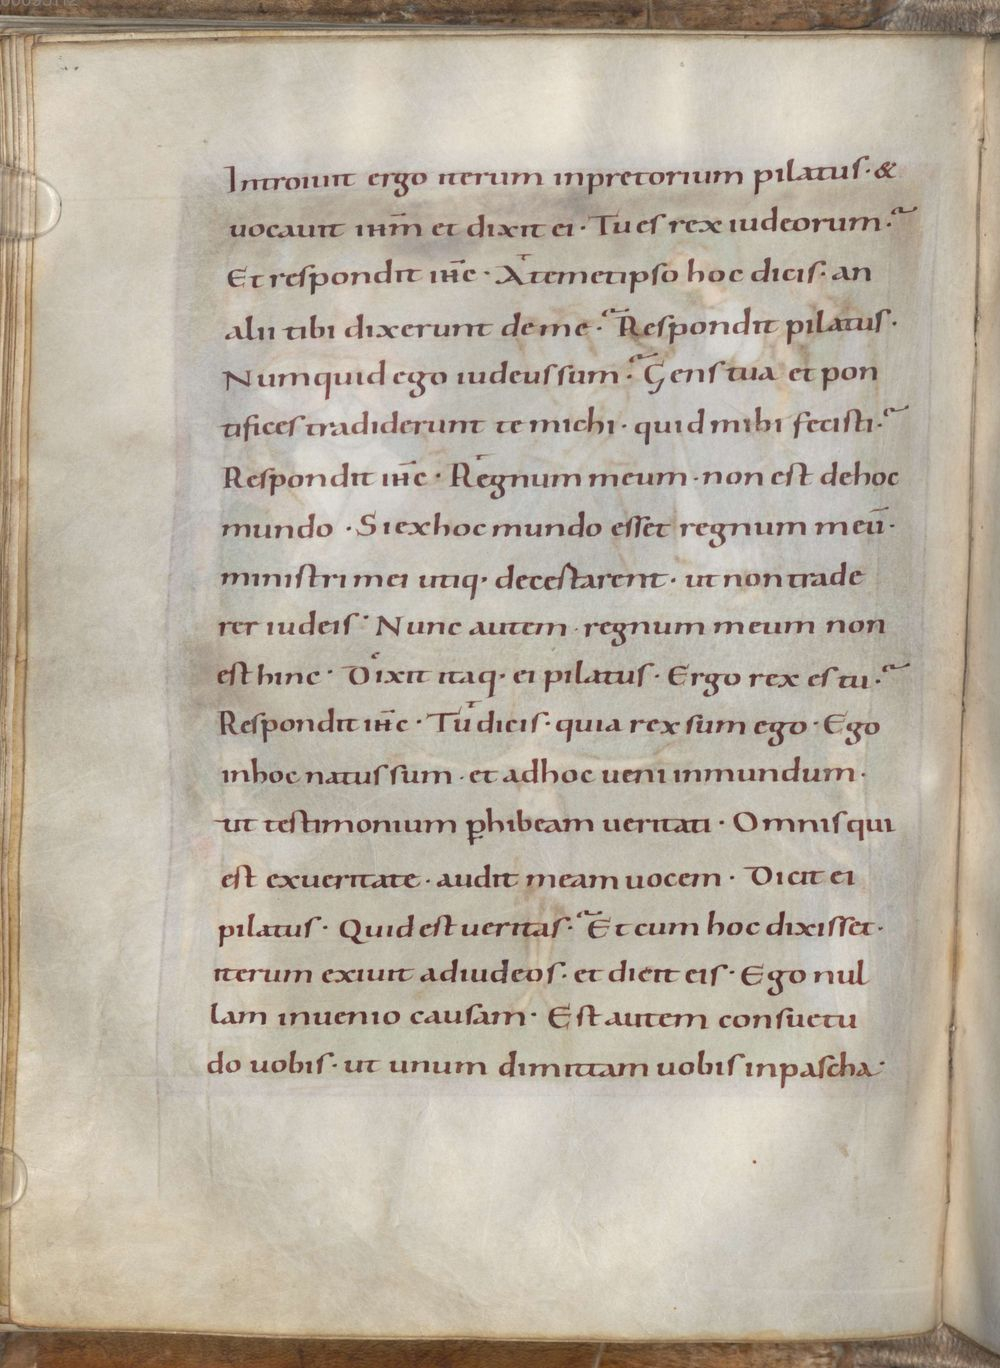 Introiuit ergo iterum inpretorium pilatus · &
uocauit ihm̄ et dixit ei · Tu es rex iudeorum ·
Et respondit ihc̄ · A temetipso hoc dicis · an
alii tibi dixerunt de me · Respondit pilatus ·
Numquid ego iudeus sum · Gens tua et pon
tifices tradiderunt te michi · quid mihi fecisti ·
Respondit ihc̄ · Regnum meum · non est dehoc
mundo · Si exhoc mundo esset regnum meū ·
ministri mei utiq· decestarent · ut non trade
rer iudeis · Nunc autem · regnum meum non
est hinc · Dixit itaq· ei pilatus · Ergo rex es tu ·
Respondit ihc̄ · Tu dicis · quia rex sum ego · Ego
inhoc natus sum · et adhoc ueni inmundum ·
ut testimonium ꝑhibeam ueritati · Omnis qui
est exueritate · audit meam uocem · Dicit ei
pilatus · Quid est ueritas · Et cum hoc dixisset ·
iterum exiuit adiudeos · et dicit eis · Ego nul
lam inuenio causam · Est autem consuetu
do uobis · ut unum dimittam uobis inpascha ·